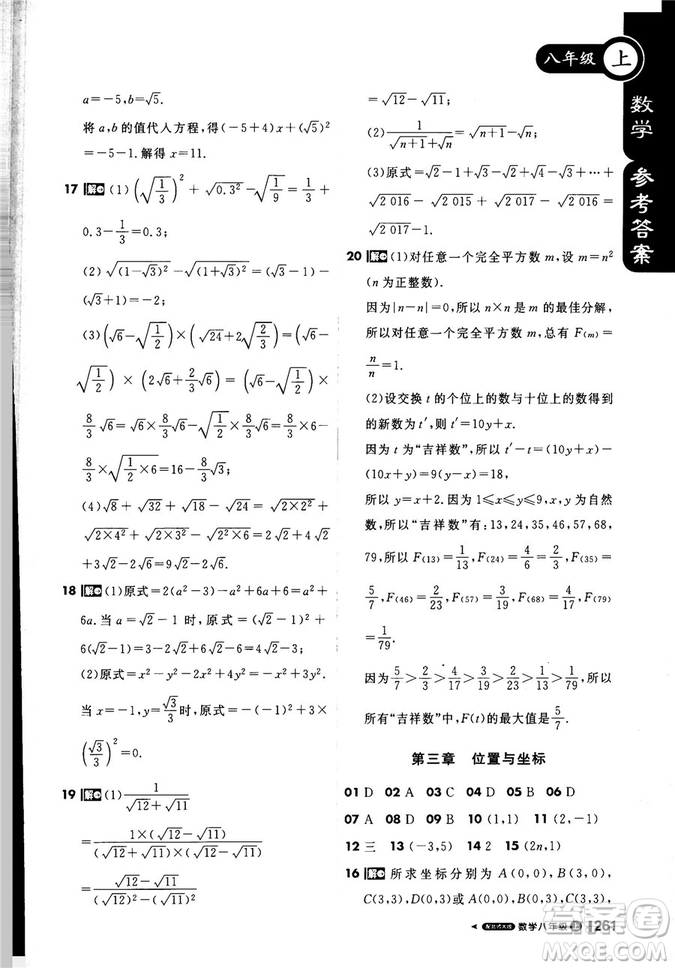 八年级 上
数学 参考答案
a=-5,b=√5.
将 a,b的值代入方程,得(-5+4)x+(√5)²
=-5-1.解得 x=11.
17 解 (1)(√(1/3))²+√(0.3²)-√(1/9)=1/3+
0.3-1/3=0.3;
(2)√((1-√3)²)-√((√3-2)²)=√3-1-
(2-√3)=√3-1-2+√3=2√3-3;
(3)(√6-√(1/2))×(√24+2√(2/3))=(√6-
√(1/2))×(2√6+2/3√6)=(√6-√(1/2))×
8/3√6=√6×8/3√6-√(1/2)×8/3√6=8/3×6-
8/3×√(1/2×6)=16-8/3√3;
(4)√8+√32+√24-√18=√(2×2²)+
√(2×4²)+√(2²×6)-√(2×3²)=2√2+4√2+
2√6-3√2=3√2+2√6.
18 解 (1)原式=2(a²-3)-a²+6a+6=a²+
6a.当 a=√2-1时,原式=(√2-1)²+
6(√2-1)=3-2√2+6√2-6=4√2-3;
(2)原式=x²-y²-2x²+4y²=-x²+3y².
当 x=-1,y=√3/3时,原式=-(-1)²+3×
(√3/3)²=0.
19 解 (1)1/(√12+√11)
=1×(√12-√11)/((√12+√11)(√12-√11))
=(√12-√11)/((√12)²-(√11)²)
=√12-√11;
(2)1/(√(n+1)+√n)=√(n+1)-√n;
(3)原式=√2-1+√3-√2+√4-√3+…+
√2 016-√2 015+√2 017-√2 016=
√2 017-1.
20 解 (1)对任意一个完全平方数 m,设 m=n²
(n为正整数).
因为|n-n|=0,所以 n×n 是 m 的最佳分解,
所以对任意一个完全平方数 m,总有 F(m)=
n/n=1.
(2)设交换 t 的个位上的数与十位上的数得到
的新数为 t′,则 t′=10y+x.
因为 t 为“吉祥数”,所以 t′-t=(10y+x)-
(10x+y)=9(y-x)=18,
所以 y=x+2.因为 1≤x≤y≤9,x,y为自然
数,所以“吉祥数”有:13,24,35,46,57,68,
79,所以 F(13)=1/13,F(24)=4/6=2/3,F(35)=
5/7,F(46)=2/23,F(57)=3/19,F(68)=4/17,F(79)
=1/79.
因为5/7>2/3>4/17>3/19>2/23>1/13>1/79,所以
所有“吉祥数”中,F(t)的最大值是5/7.
第三章 位置与坐标
01 D 02 A 03 C 04 A 05 B 06 D
07 A 08 D 09 B 10 (1,1) 11 (2,-1)
12 三 13 (-3,5) 14 2 15 (2n,1)
16 解 所求坐标分别为 A(0,0),B(3,0),
C(3,3),D(0,3)或A(0,0),B(0,3),C(3,3),
配北师大版 数学八年级 上 261